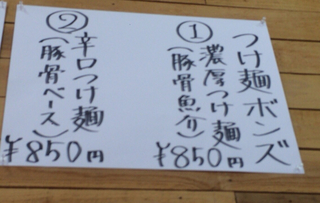 つけ麺ボンズ
①
濃厚つけ麺
(豚骨魚介)
¥850円
②
辛口つけ麺
(豚骨ベース)
¥850円